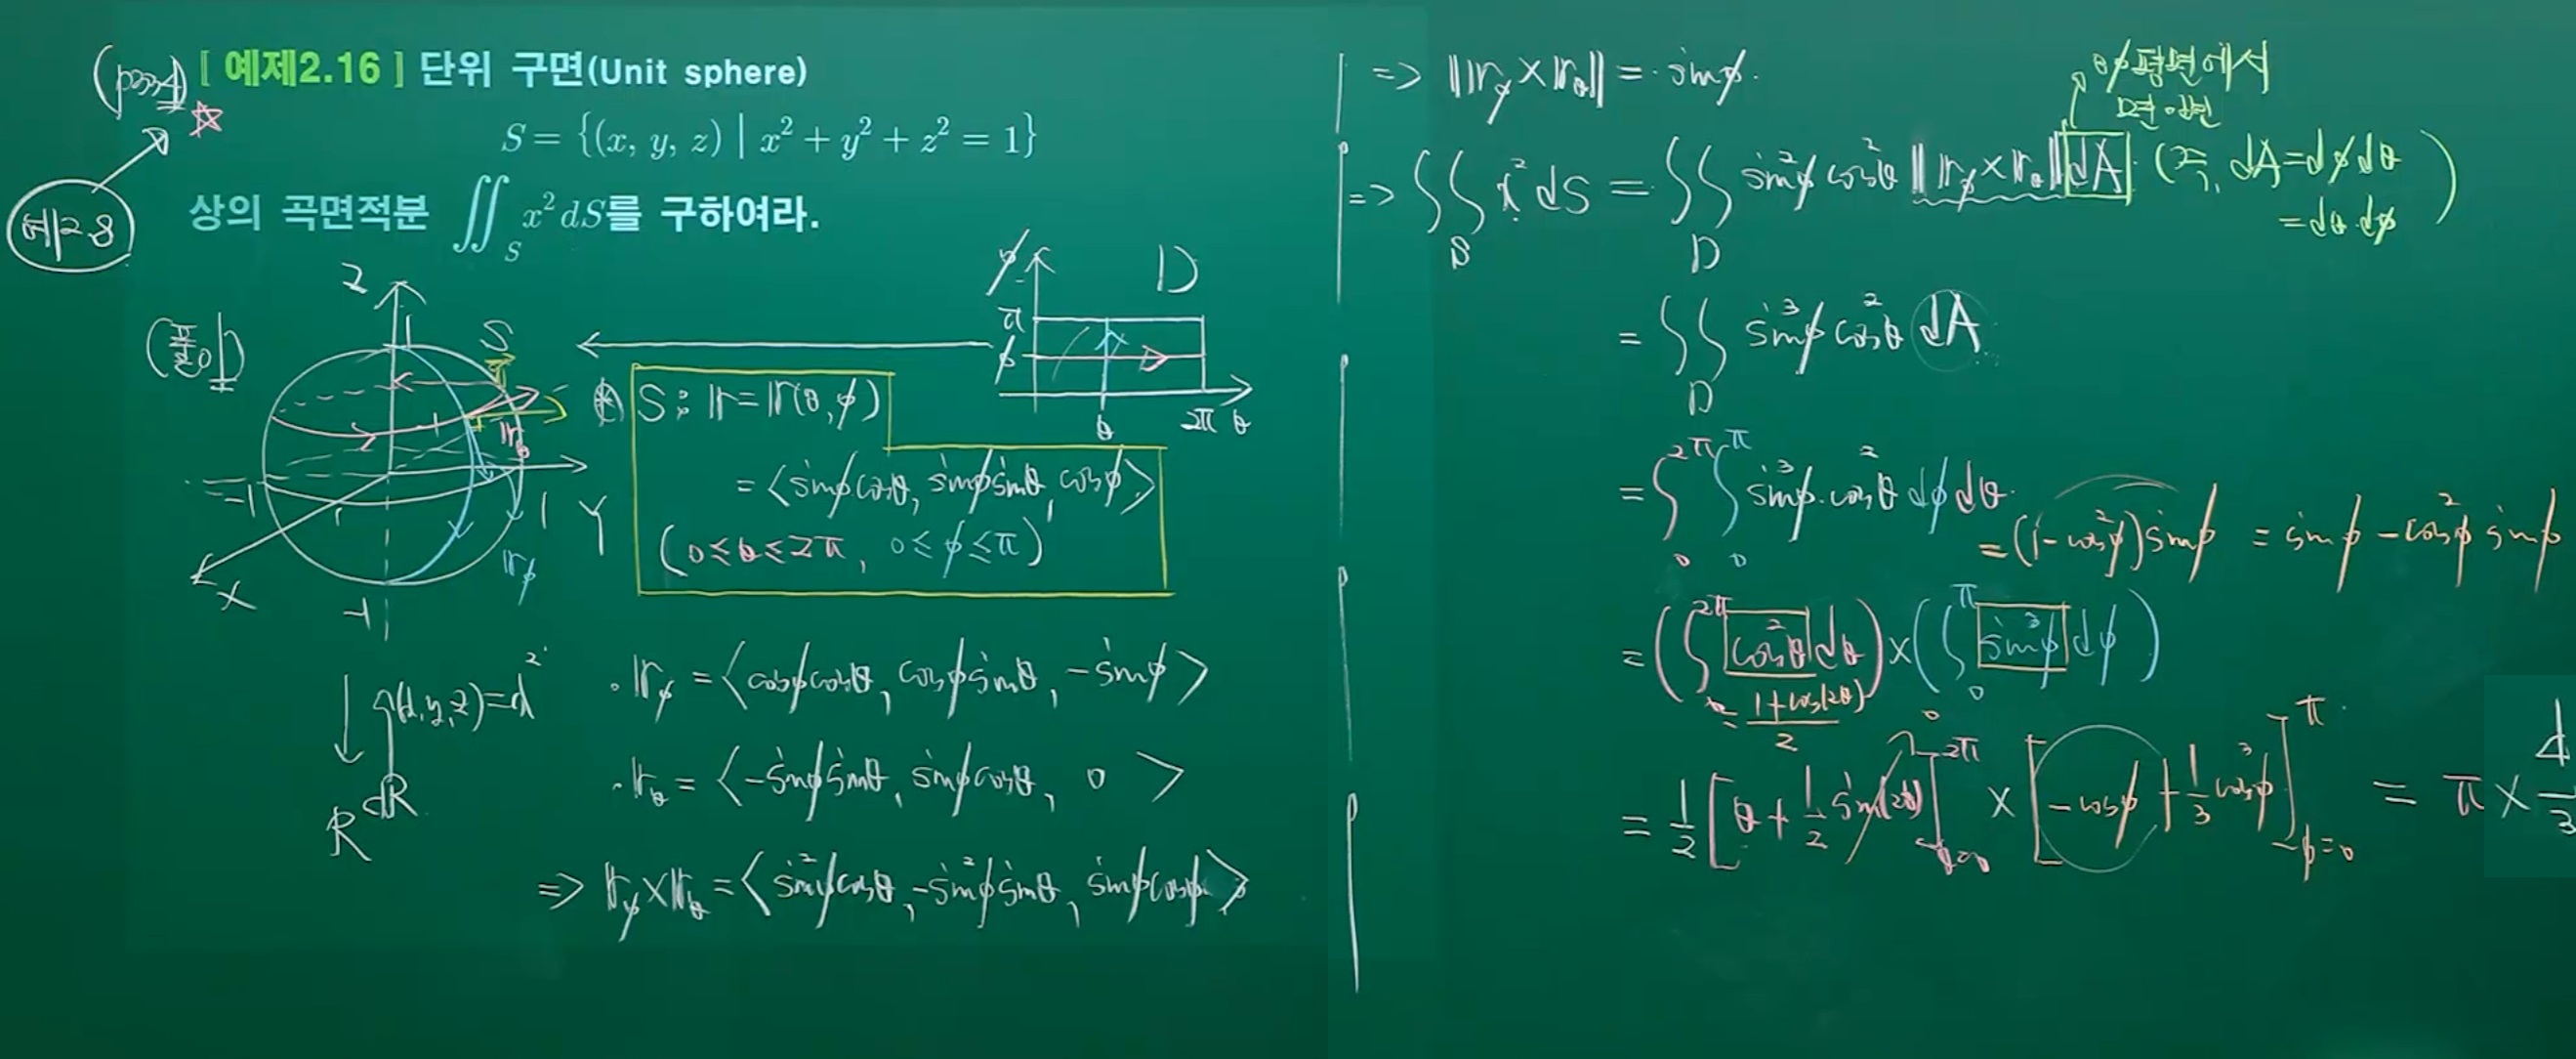 [ 예제2.16 ] 단위 구면(Unit sphere)
S = {(x, y, z) | x² + y² + z² = 1}
상의 곡면적분 ∬_S x² dS를 구하여라.
예2.8
(풀이)
Z
1
S
-1
1
Y
X
-1
r_θ
r_φ
φ
D
π
φ
θ
2π θ
S : r = r(θ, φ)
= <sinφcosθ, sinφsinθ, cosφ>
(0≤θ≤2π, 0≤φ≤π)
(x,y,z)=x²
R
R
· r_φ = <cosφcosθ, cosφsinθ, -sinφ>
· r_θ = <-sinφsinθ, sinφcosθ, 0>
=> r_φ × r_θ = <sin²φcosθ, -sin²φsinθ, sinφcosφ>
=> ‖r_φ × r_θ‖ = sinφ.
θφ평면에서
=> ∬_S x² dS = ∬_D sin²φ cos²θ ‖r_φ × r_θ‖ dA (즉, dA = dφdθ
= dθ dφ)
= ∬_D sin³φ cos²θ dA
= ∫₀^2π ∫₀^π sin³φ·cos²θ dφ dθ
= (1-cos²φ)sinφ = sinφ - cos²φ sinφ
= (∫₀^2π cos²θ dθ) × (∫₀^π sin³φ dφ)
= (1+cos(2θ))/2
0
= 1/2 [θ + 1/2 sin(2θ)]_θ=0^2π × [-cosφ + 1/3 cos³φ]_φ=0^π = π × 4/3